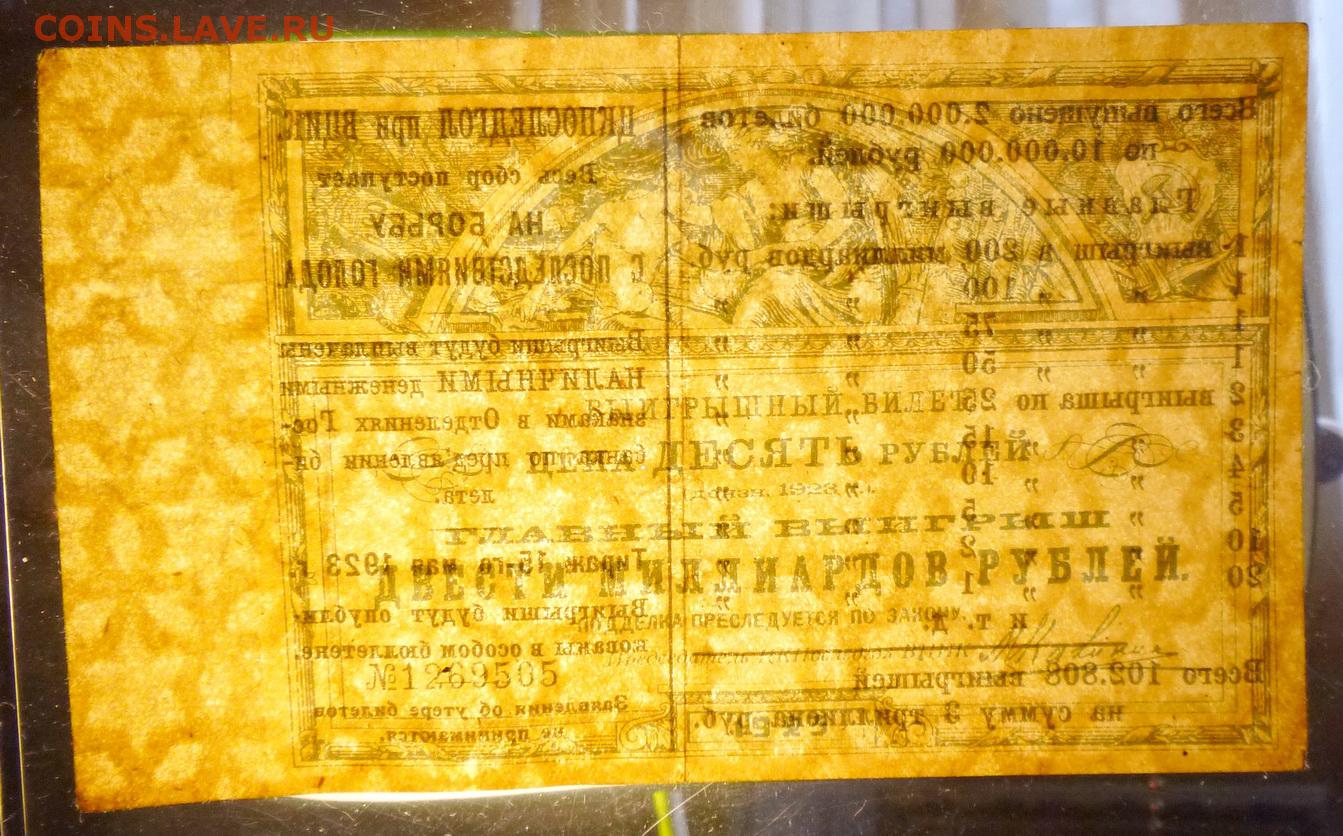 COINS.LAVE.RU
ЦКПОСЛЕДГОЛ при ВЦИК.
Весь сбор поступает
НА БОРЬБУ
С ПОСЛЕДСТВИЯМИ ГОЛОДА.
Выигрыши будут выплачены
НАЛИЧНЫМИ денежными
знаками в Отделениях Гос-
банка по предъявлении би-
лета.
Тираж 15-го мая 1923 г.
Выигрыши будут опубли-
кованы в особом бюллетене.
Заявления об утере билетов
не принимаются.
Всего выпущено 2.000.000 билетов
по 10.000.000 рублей.
Главные выигрыши:
1 выигрыш в 200 миллиардов руб.
1 „ „ 100 „ „
1 „ „ 75 „ „
1 „ „ 50 „ „
2 выигрыша по 25 „ „
3 „ „ 15 „ „
4 „ „ 10 „ „
5 „ „ 5 „ „
10 „ „ 2 „ „
20 „ „ 1 „ „
и т. д.
Всего 102.808 выигрышей
на сумму 3 триллиона руб.
ВЫИГРЫШНЫЙ БИЛЕТ
ЦЕНА ДЕСЯТЬ РУБЛЕЙ
1923 г.
ГЛАВНЫЙ ВЫИГРЫШ
ДВЕСТИ МИЛЛИАРДОВ РУБЛЕЙ.
ПОДДЕЛКА ПРЕСЛЕДУЕТСЯ ПО ЗАКОНУ.
Председатель
№1269505